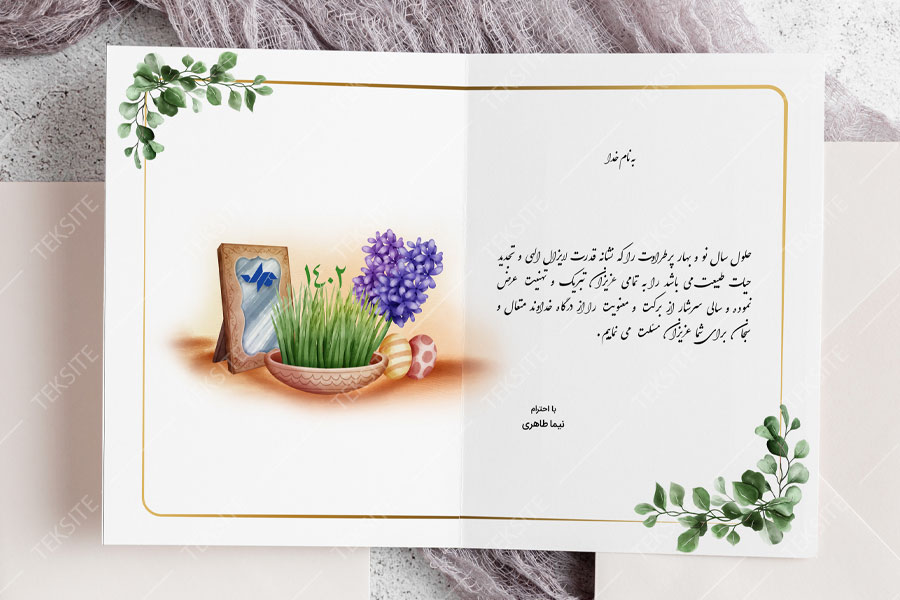 به نام خدا
حلول سال نو و بهار پرطراوت را که نشانه قدرت لایزال الهی و تجدید
حیات طبیعت می باشد را به تمامی عزیزان تبریک و تهنیت عرض
نموده و سالی سرشار از برکت و معنویت را از درگاه خداوند متعال و
سبحان برای شما عزیزان مسئلت می نماییم.
با احترام
نیما طاهری
۱۴۰۲
TEKSITE